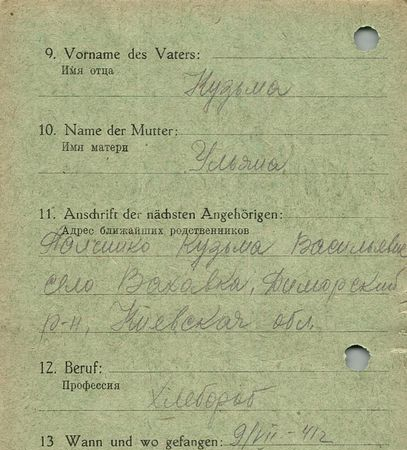 9. Vorname des Vaters:
Имя отца
Кузьма
10. Name der Mutter:
Имя матери
Ульяна
11. Anschrift der nächsten Angehörigen:
Адрес ближайших родственников
Кузьма Васильевич
село Ваховка, Димерский
р-н, Киевская обл.
12. Beruf:
Профессия
Хлебороб
13 Wann und wo gefangen: 9/VII-41г